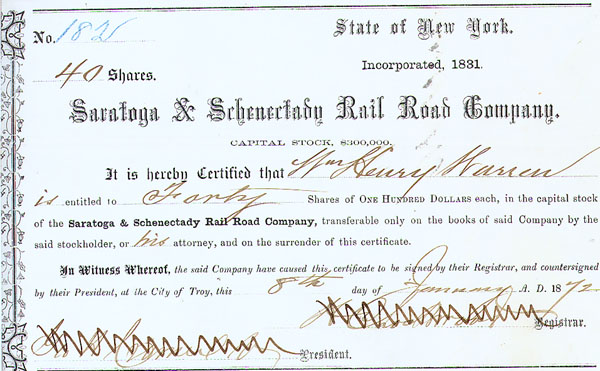 State of New York.
No. 182
Incorporated, 1831.
40 Shares.
Saratoga & Schenectady Rail Road Company.
CAPITAL STOCK, $300,000.
It is hereby Certified that Wm Henry Warren
is entitled to Forty Shares of ONE HUNDRED DOLLARS each, in the capital stock
of the Saratoga & Schenectady Rail Road Company, transferable only on the books of said Company by the
said stockholder, or his attorney, and on the surrender of this certificate.
In Witness Whereof, the said Company have caused this certificate to be signed by their Registrar, and countersigned
by their President, at the City of Troy, this 8th day of January A. D. 1872
Registrar.
President.